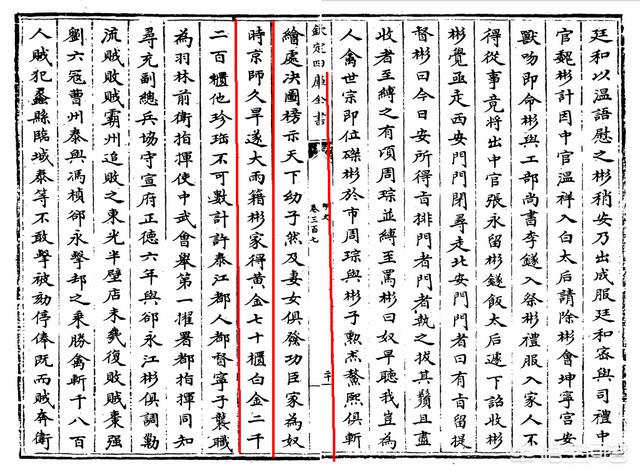 廷和以温語慰之彬稍安乃出成服廷和密與司禮中
官魏彬計因中官温祥入白太后請除彬會坤寧宫安
獸吻即命彬與工部尚書李鐩入祭彬禮服入家人不
得從事竟將出中官張永留彬鐩飯太后遽下詔收彬
彬覺亟走西安門門閉尋走北安門門者曰有旨留提
督彬曰今日安所得旨排門者門者執之拔其鬚且盡
收者至縛之有頃周琮並縛至罵彬曰奴早聽我豈為
人禽世宗即位磔彬於市周琮與彬子勲杰鰲熙俱斬
欽定四庫全書
明史
卷三百七
二十
繪處決圖榜示天下幼子然及妻女俱發功臣家為奴
時京師久旱遂大雨籍彬家得黄金七十櫃白金二千
二百櫃他珍珤不可數計許泰江都人都督寧子襲職
為羽林前衛指揮使中武會舉第一擢署都指揮同知
尋充副總兵協守宣府正德六年與郤永江彬俱調勦
流賊敗賊霸州追敗之東光半壁店未幾復敗賊棗强
劉六冦曹州泰與馮楨郤永擊却之乘勝禽斬千八百
人賊犯蠡縣臨城泰等不敢擊被劾停俸既而賊奔衛